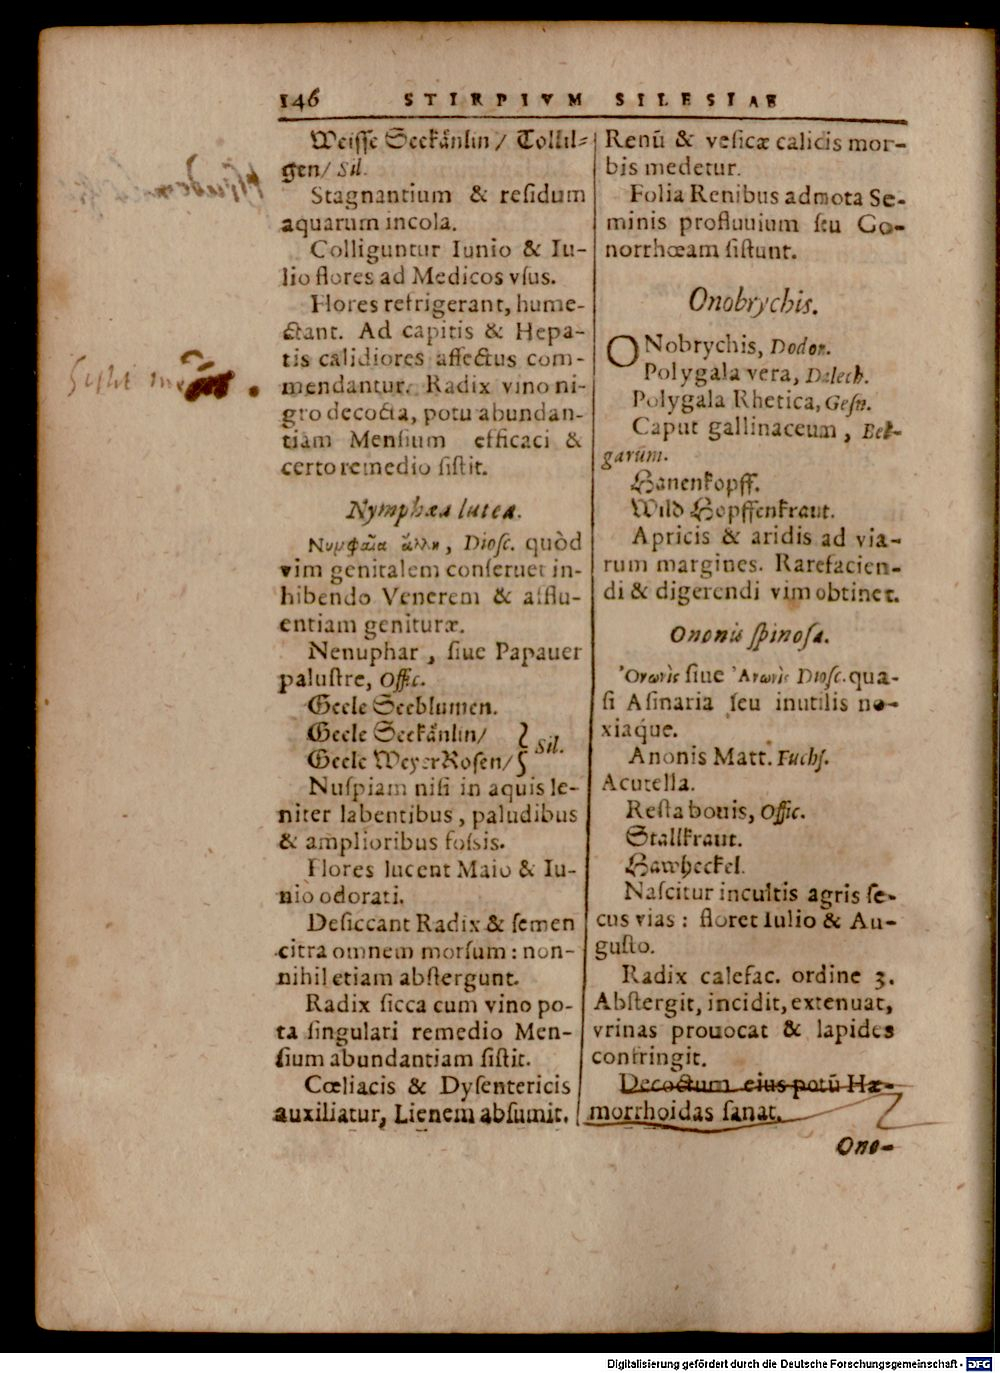 146 STIRPIVM SILESIAE
Weisse Seekänlin/ Tollil⸗
gen/ Sil.
Stagnantium & residum
aquarum incola.
Colliguntur Iunio & Iu-
lio flores ad Medicos vsus.
Flores refrigerant, hume-
ctant. Ad capitis & Hepa-
tis calidiores affectus com-
mendantur. Radix vino ni-
gro decocta, potu abundan-
tiam Mensium efficaci &
certo remedio sistit.
Nymphæa lutea.
Νυμφαῖα ἄλλη, Diosc. quòd
vim genitalem conseruet in-
hibendo Venerem & afflu-
entiam genituræ.
Nenuphar, siue Papauer
palustre, Offic.
Geele Seeblumen.
Geele Seekänlin/
Geele WeyerRosen/ } Sil.
Nuspiam nisi in aquis le-
niter labentibus, paludibus
& amplioribus fossis.
Flores lucent Maio & Iu-
nio odorati.
Desiccant Radix & semen
citra omnem morsum: non-
nihil etiam abstergunt.
Radix sicca cum vino po-
ta singulari remedio Men-
sium abundantiam sistit.
Cœliacis & Dysentericis
auxiliatur, Lienem absumit.
Renū & vesicæ calicis mor-
bis medetur.
Folia Renibus admota Se-
minis profluuium seu Go-
norrhœam sistunt.
Onobrychis.
ONobrychis, Dodon.
Polygala vera, Dalech.
Polygala Rhetica, Gesn.
Caput gallinaceum, Bel-
garum.
Hanenkopff.
Wild Hopffenkraut.
Apricis & aridis ad via-
rum margines. Rarefacien-
di & digerendi vim obtinet.
Ononis spinosa.
Ὀνωνὶς siue Ἀνωνὶς Diosc. qua-
si Asinaria seu inutilis no-
xiaq́ue.
Anonis Matt. Fuchs.
Acutella.
Resta bouis, Offic.
Stallkraut.
Hawheckel.
Nascitur incultis agris se-
cus vias: floret Iulio & Au-
gusto.
Radix calefac. ordine 3.
Abstergit, incidit, extenuat,
vrinas prouocat & lapides
confringit.
Decoctum eius potū Hæ-
morrhoidas sanat.
Ono-
Digitalisierung gefördert durch die Deutsche Forschungsgemeinschaft - DFG